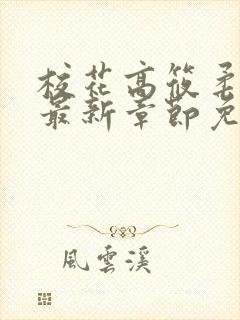 校花高筱柔
最新章節免
風雲溪